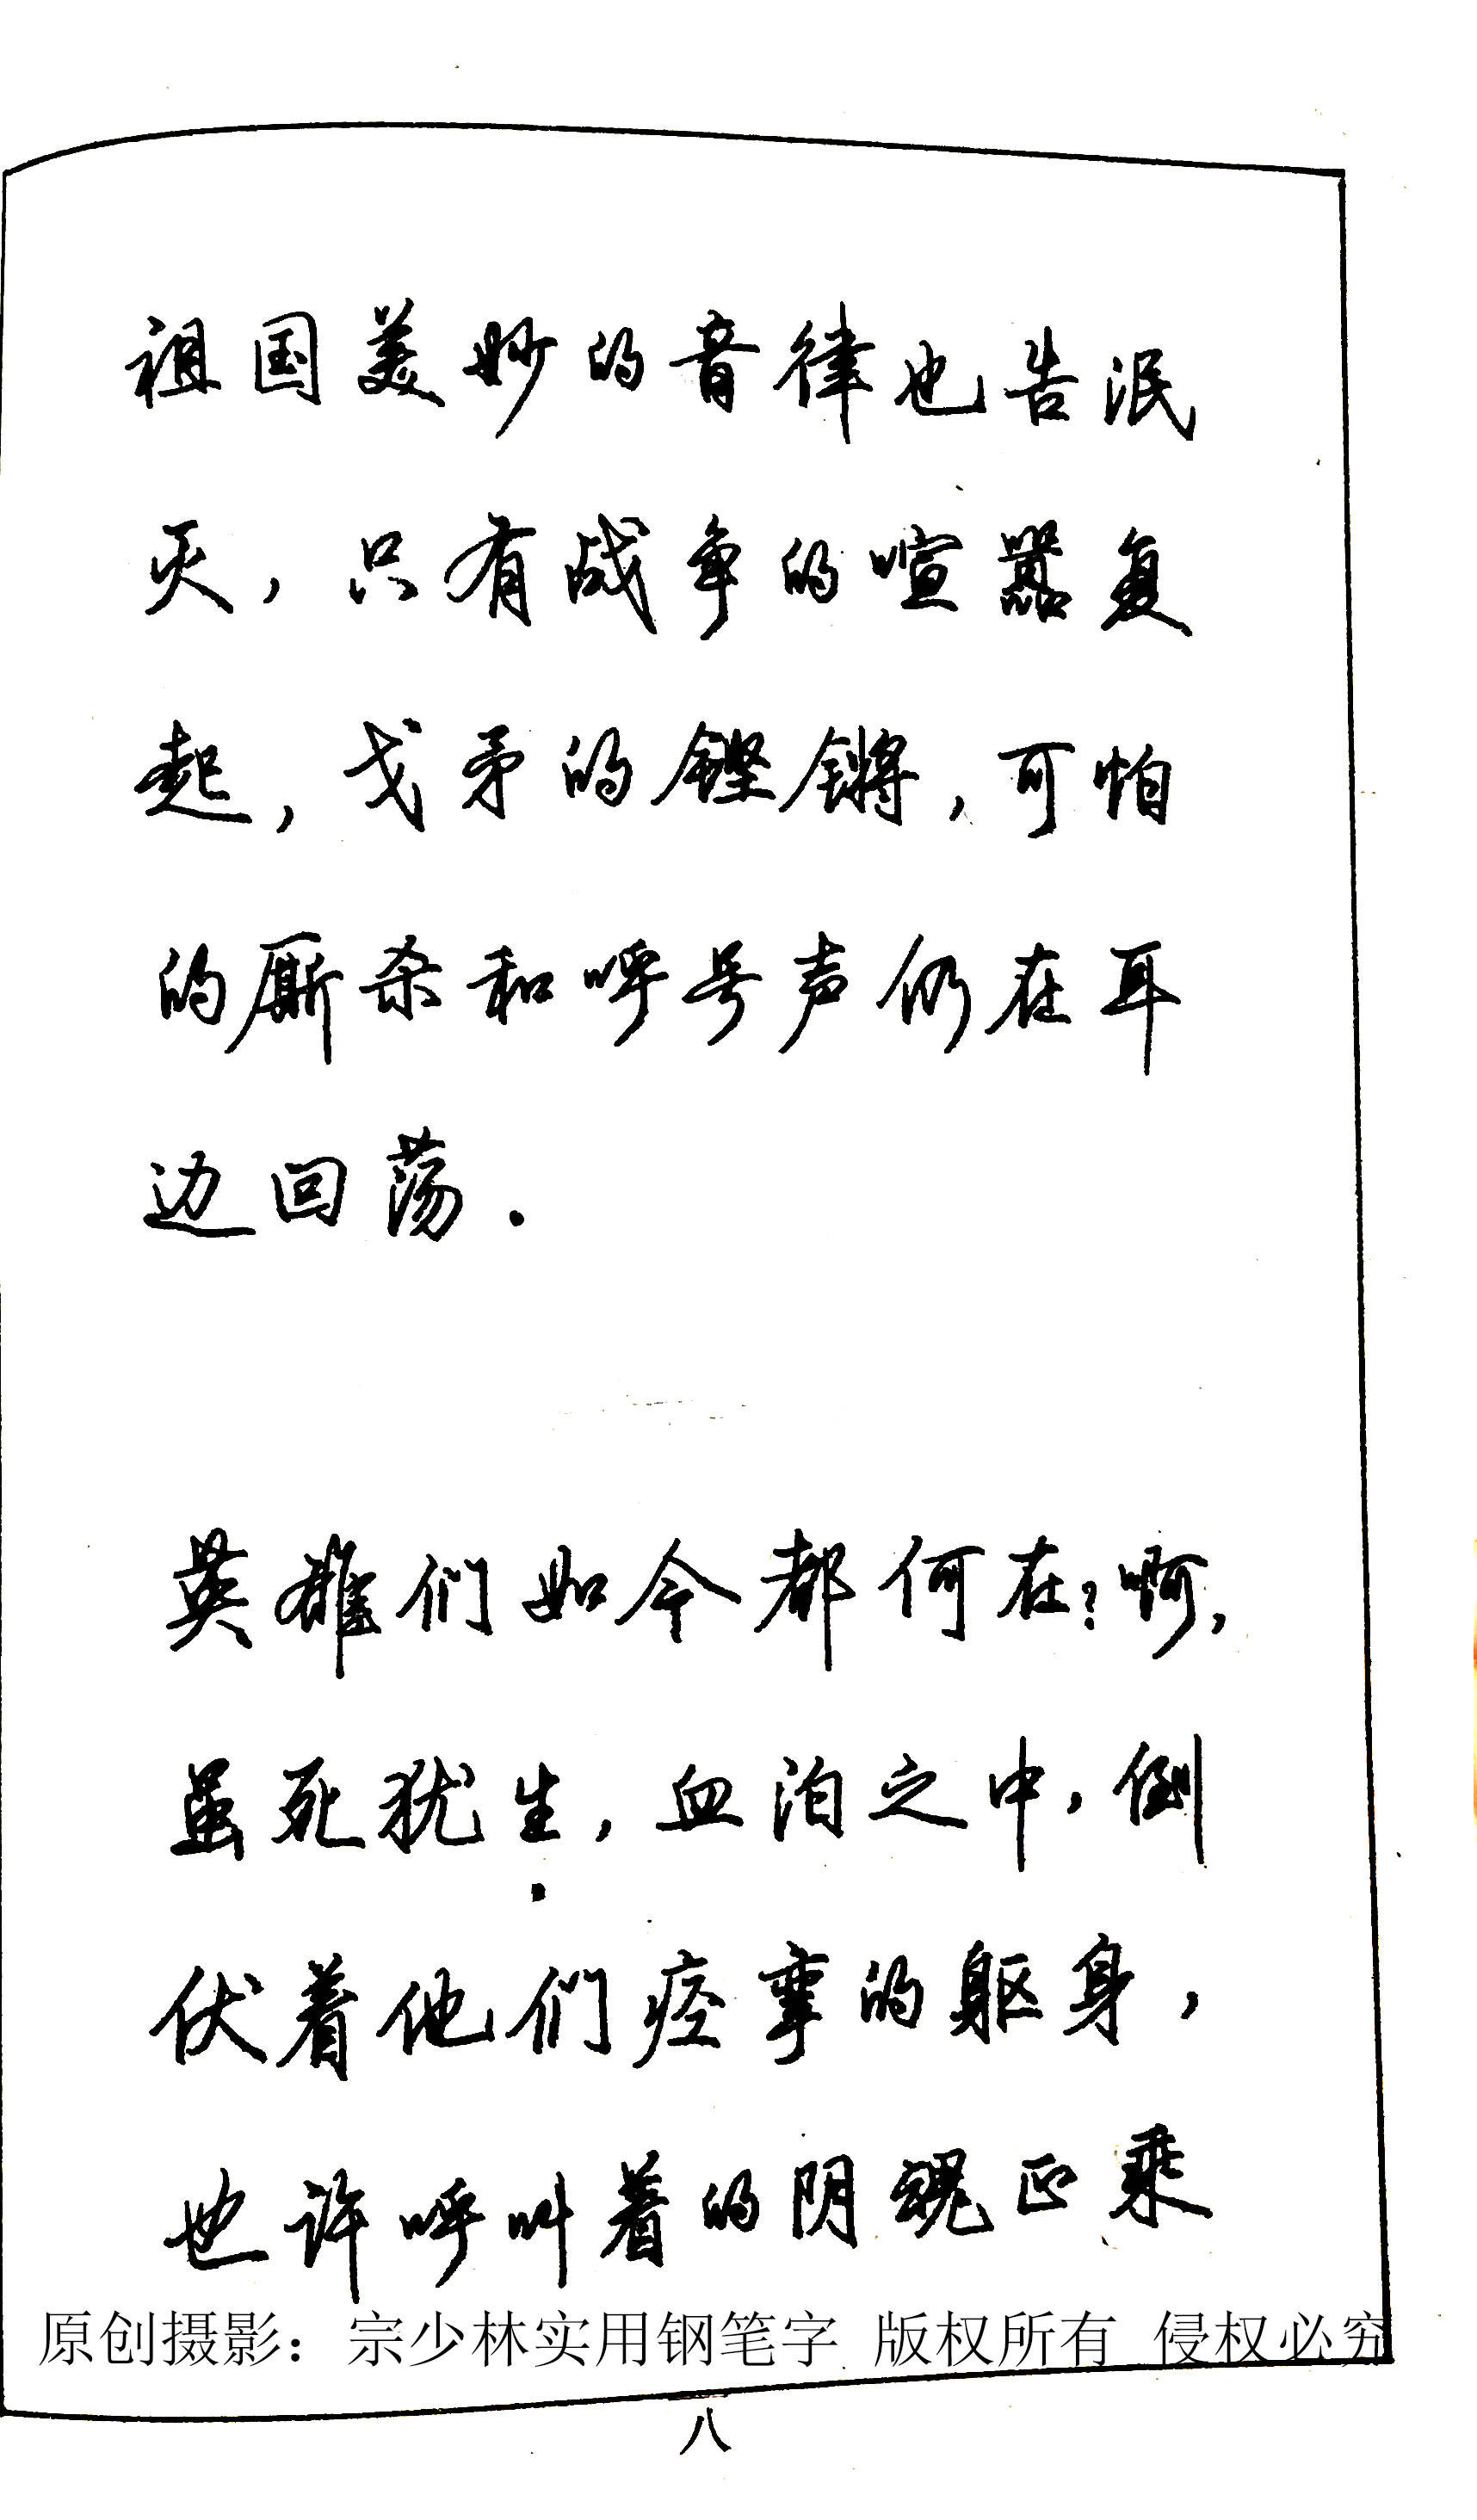 祖国美妙的音律也告泯
灭，只有战争的喧嚣复
起，戈矛的铿锵，可怕
的厮杀和呼号声仍在耳
边回荡.
英雄们如今都何在?啊,
虽死犹生，血泊之中，倒
伏着他们痉挛的躯身，
也许呼叫着的阴魂正乘
原创摄影：宗少林实用钢笔字 版权所有 侵权必究
八